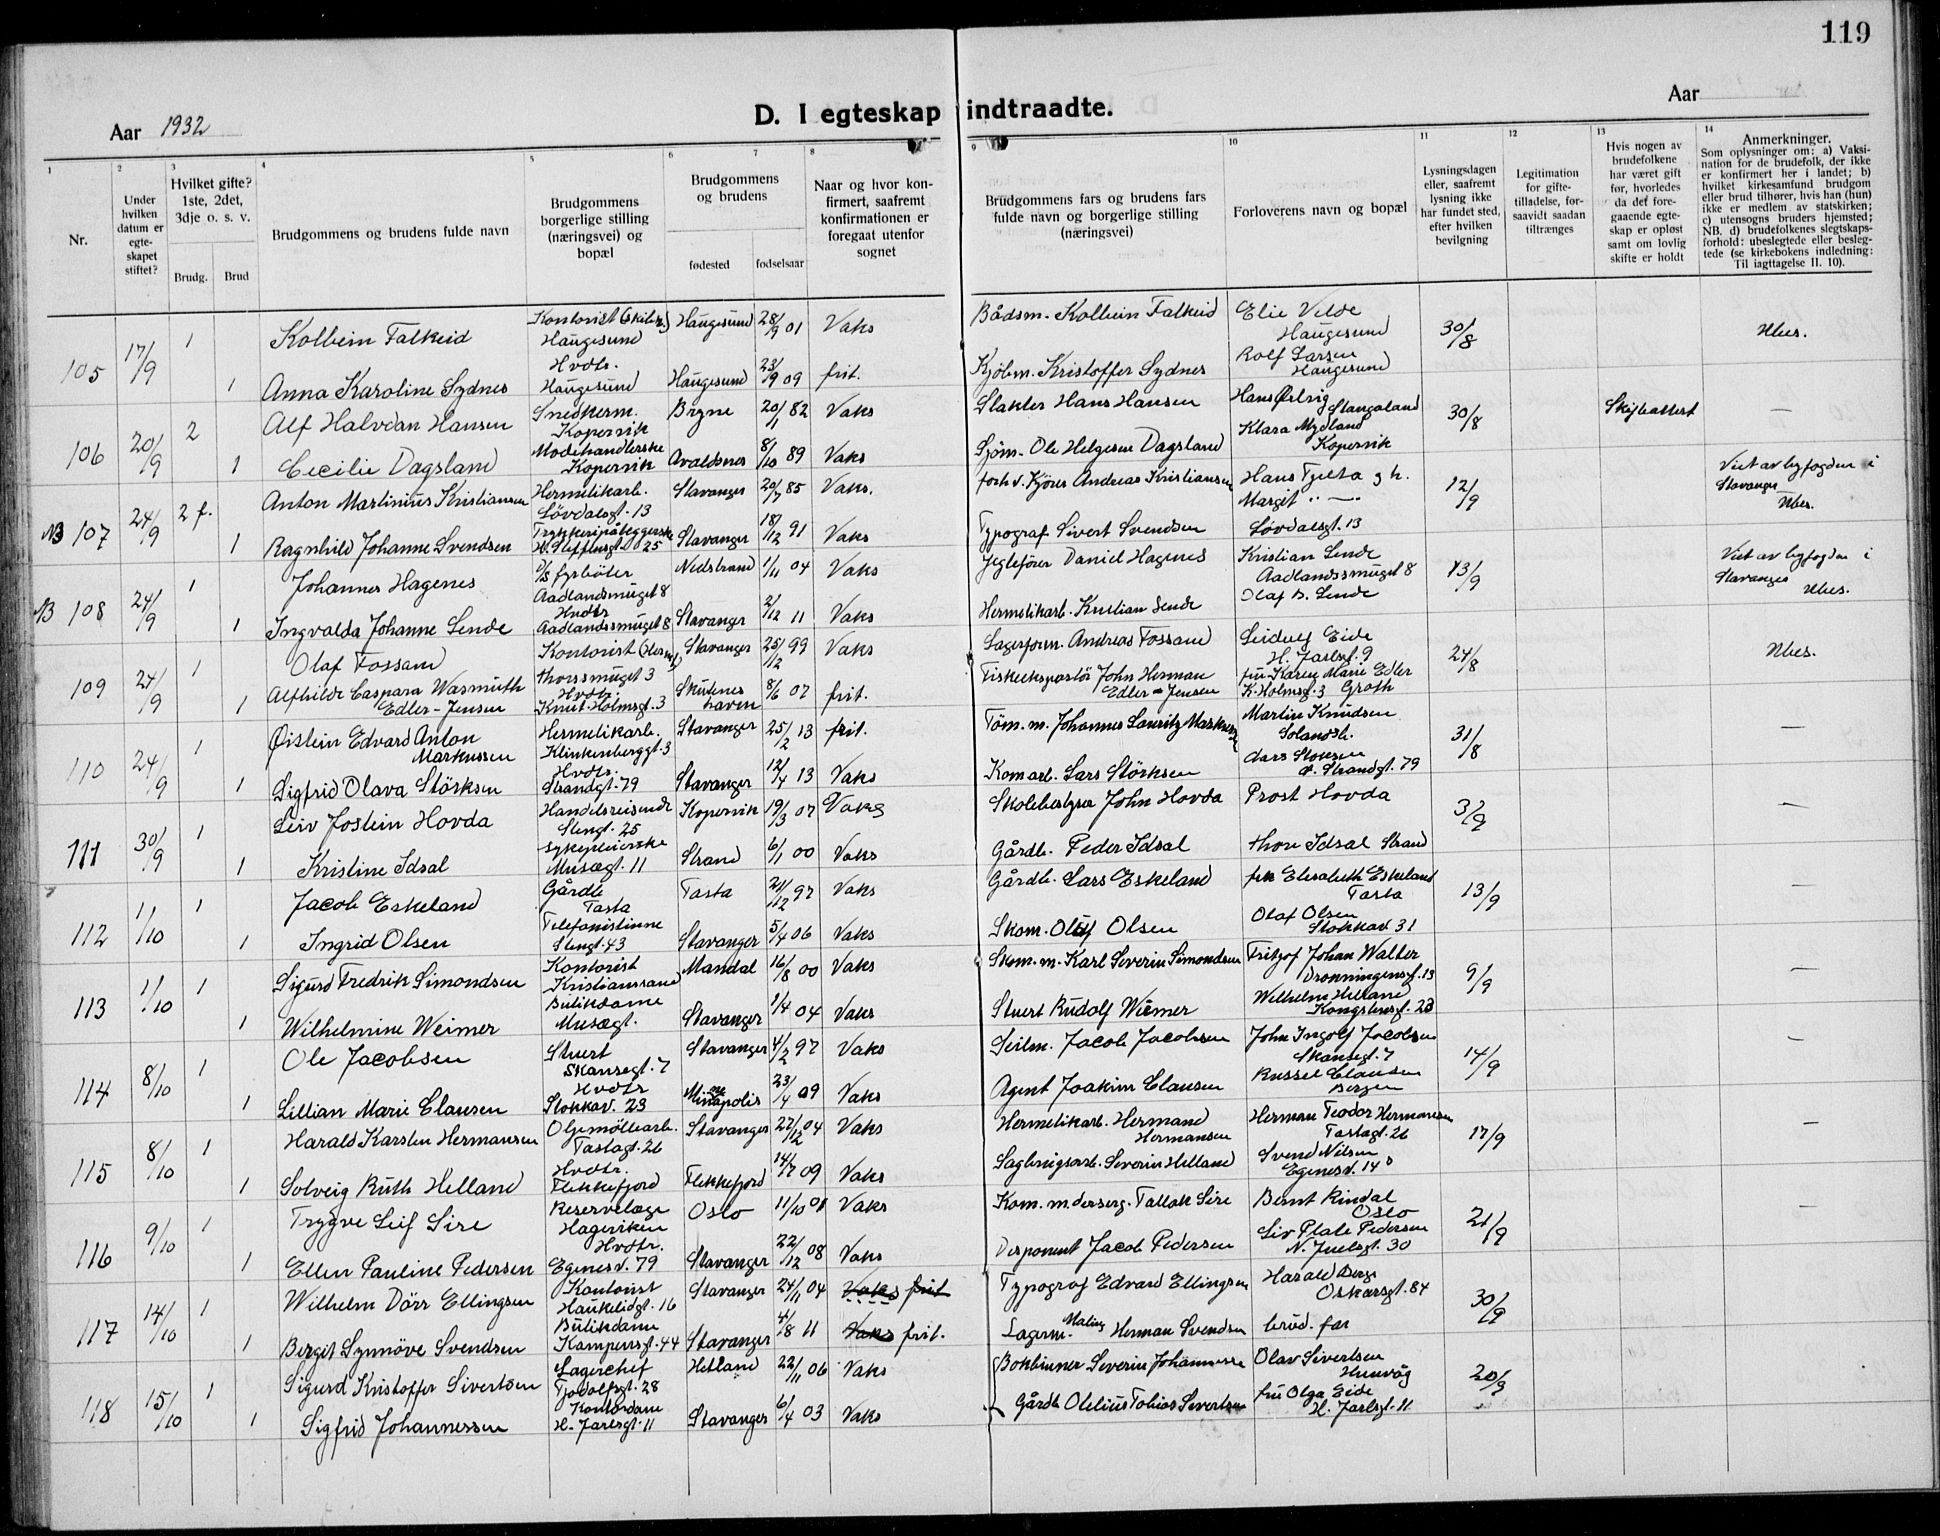 119
Aar 1932
D. I egteskap indtraadte.
Aar
1 2 3 4 5 6 7 8 9 10 11 12 13 14
Nr.
Under hvilken datum er egte- skapet stiftet?
Hvilket gifte? 1ste, 2det, 3dje o. s. v.
Brudg. Brud
Brudgommens og brudens fulde navn
Brudgommens borgerlige stilling (næringsvei) og bopæl
Brudgommens og brudens
fødested fødselsaar
Naar og hvor kon- firmert, saafremt konfirmationen er foregaat utenfor sognet
Brudgommens fars og brudens fars fulde navn og borgerlige stilling (næringsvei)
Forloverens navn og bopæl
Lysningsdagen eller, saafremt lysning ikke har fundet sted, efter hvilken bevilgning
Legitimation for gifte- tilladelse, for- saavidt saadan tiltrænges
Hvis nogen av brudefolkene har været gift før, hvorledes da det fore- gaaende egte- skap er opløst samt om lovlig skifte er holdt
Anmerkninger.
Som oplysninger om: a) Vaksi- nation for de brudefolk, der ikke er konfirmert her i landet; b) hvilket kirkesamfund brudgom eller brud tilhører, hvis han (hun) ikke er medlem av statskirken; c) utensogns bruders hjemsted; NB. d) brudefolkenes slegtskaps- forhold: ubeslegtede eller besleg- tede (se kirkebokens indledning: Til iagttagelse II. 10).
105 17/9 1 Kolbein Falkeid Kontorist Haugesund Haugesund 28/9 01 Vaks Bådsm. Kolbein Falkeid Elie Velde Haugesund 30/8 Ubes.
1 Anna Karoline Sydnes Hvdtr. Haugesund Haugesund 23/9 09 frit. Kjøbm. Kristoffer Sydnes Rolf Larsen Haugesund
106 20/9 2 Alf Halvdan Hansen Snedkerm. Kopervik Bryne 20/1 82 Vaks Slakter Hans Hansen Hans Stangaland 30/8 Skifteattest —
1 Cecilie Dagsland Modehandlerske Kopervik Avaldsnes 8/10 89 Vaks Sjøm. Ole Helgesen Dagsland Klara Mydland Kopervik
NB 107 24/9 2 f. Anton Martinius Kristiansen Hermetikarb. Løvdalsgt. 13 Stavanger 20/7 85 Vaks. forh.v. Kjører Andreas Kristiansen Hans Tjelta g h. 12/9 Viet av byfogden i Stavanger Ubes.
1 Ragnhild Johanne Svendsen Trykkeripåleggerske 25 Stavanger 18/12 91 Vaks Typograf Sivert Svendsen Margit " — Løvdalsgt. 13
NB 108 24/9 1 Johannes Hagenes D/S fyrbøter Aadlandsmuget 8 Nedstrand 1/11 04 Vaks Jegtefører Daniel Hagenes Kristian Lende Aadlandssmuget 8 13/9 Viet av byfogden i Stavanger Ubes.
1 Ingvalda Johanne Lende Hvdtr Aadlandssmuget 8 Stavanger 2/12 11 Vaks Hermetikarb. Kristian Lende Olaf B. Lende
109 24/9 1 Olaf Fossand Kontorist Thorssmuget 3 Stavanger 25/12 99 Vaks Lagerform. Andreas Fossand Ludvig Eide H. Jarlsgt. 9 24/8 Ubes.
1 Alfhilde Caspara Wasmuth Edler-Jensen Hvdtr. Knut Holmsgt. 3 Skudenes havn 8/6 07 frit. Fiskeeksportør John Herman Edler-Jensen fru Karen Marie Edler K. Holmsgt. 3 Groth
110 24/9 1 Øistein Edvard Anton Markussen Hermetikarb. Klinkenberggt. 3 Stavanger 25/2 13 frit. Tøm. m. Johannes Lauritz Markussen Martin Knudsen 31/8 —
1 Sigfrid Olava Størksen Hvdtr. Strandgt. 79 Stavanger 12/4 13 Vaks Kom arb. Lars Størksen Lars Størksen Ø. Strandgt. 79
111 30/9 1 Leiv Jostein Hovda Handelsreisende Stengt. 25 Kopervik 19/3 07 Vaks Skolebestyrer John Hovda Prost Hovda 3/9 —
1 Kristine Idsal Sykepleierske Musægt. 11 Strand 6/1 00 Vaks Gårdb. Peder Idsal Thore Idsal Strand
112 1/10 1 Jacob Eskeland Gårdb Tasta Tasta 21/12 97 Vaks Gårdb. Lars Eskeland frk Elisabeth Eskeland Tasta 13/9 —
1 Ingrid Olsen Telefonistinne Stengt. 43 Stavanger 5/4 06 Vaks Skom. Oluf Olsen Olaf Olsen Stokkav 31
113 1/10 1 Sigurd Fredrik Simondsen Kontorist Kristianssand Mandal 16/8 00 Vaks Skom. m. Karl Severin Simondsen Fritjof Johan Walter Dronningensgt. 13 9/9 —
1 Wilhelmine Weimer Butikdame Musægt. Stavanger 1/4 04 Vaks Stuert Rudolf Wiemer Wilhelm Helland Kongsbergt. 20
114 8/10 1 Ole Jacobsen Stuert Skansegt. 7 Stavanger 4/2 97 Vaks Seilm. Jacob Jacobsen John Ingolf Jacobsen Skansegt. 7 14/9 —
1 Lillian Marie Clausen Hvdtr Stokkav. 23 Minneapolis 23/4 09 Vaks Agent Joakim Clausen Russel Clausen Bergen
115 8/10 1 Harald Karsten Hermansen Oljemøllearb. Tastagt. 26 Stavanger 22/12 04 Vaks Hermetikarb. Hermand Hermansen Herman Teodor Hermansen Tastagt. 26 17/9 —
1 Solveig Ruth Helland Hvdtr. Flekkefjord Flekkefjord 14/7 09 Vaks Sagbrugsarb. Severin Helland Svend Nilsen Egenesv. 14
116 9/10 1 Trygve Leif Sire Reservelæge Hageviken Oslo 11/10 01 Vaks Kom. m. Tallak Sire Bernt Rindal Oslo 21/9 —
1 Ellen Pauline Pedersen Hvdtr. Egenesv. 79 Stavanger 22/12 08 Vaks Disponent Jacob Pedersen Liv Platt Pedersen N. Juelsgt. 30
117 14/10 1 Wilhelm Dörr Ellingsen Kontorist Haukeligt. 16 Stavanger 24/11 04 Vaks frit Typograf Edvard Ellingsen Harald Berge Oskarsgt. 84 30/9
1 Bergit Synnøve Svendsen Butikdame Kampensgt. 44 Stavanger 4/8 11 Vaks frit. Lagerm. Herman Svendsen brud. far
118 15/10 1 Sigurd Kristoffer Sivertsen Lagerchef Tjodolfsgt. 28 Hetland 22/11 06 Vaks Bokbinner Severin Johannessen Olav Sivertsen Hunvåg 20/9
1 Sigfrid Johannessen Kontordame H. Jarlsgt. 11 Stavanger 6/4 03 Vaks Gårdb Olelius Tobias Sivertsen fru Olga Eide H. Jarlsgt. 11